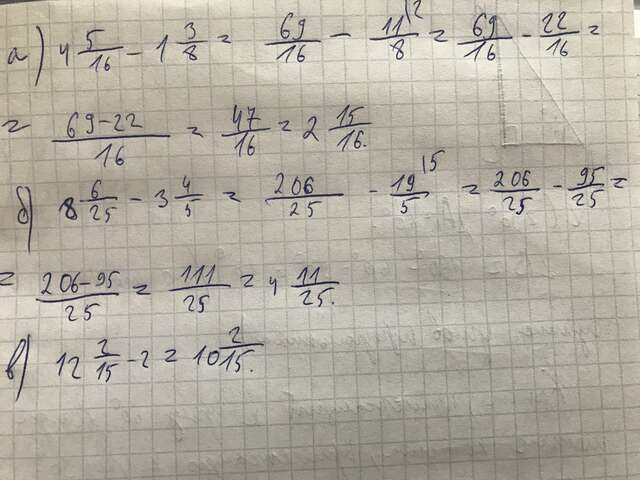 а) 4 5/16 - 1 3/8 = 69/16 - 11/8 \2 = 69/16 - 22/16 =
= 69-22/16 = 47/16 = 2 15/16.
б) 8 6/25 - 3 4/5 = 206/25 - 19/5 \5 = 206/25 - 95/25 =
= 206-95/25 = 111/25 = 4 11/25.
в) 12 2/15 - 2 = 10 2/15.